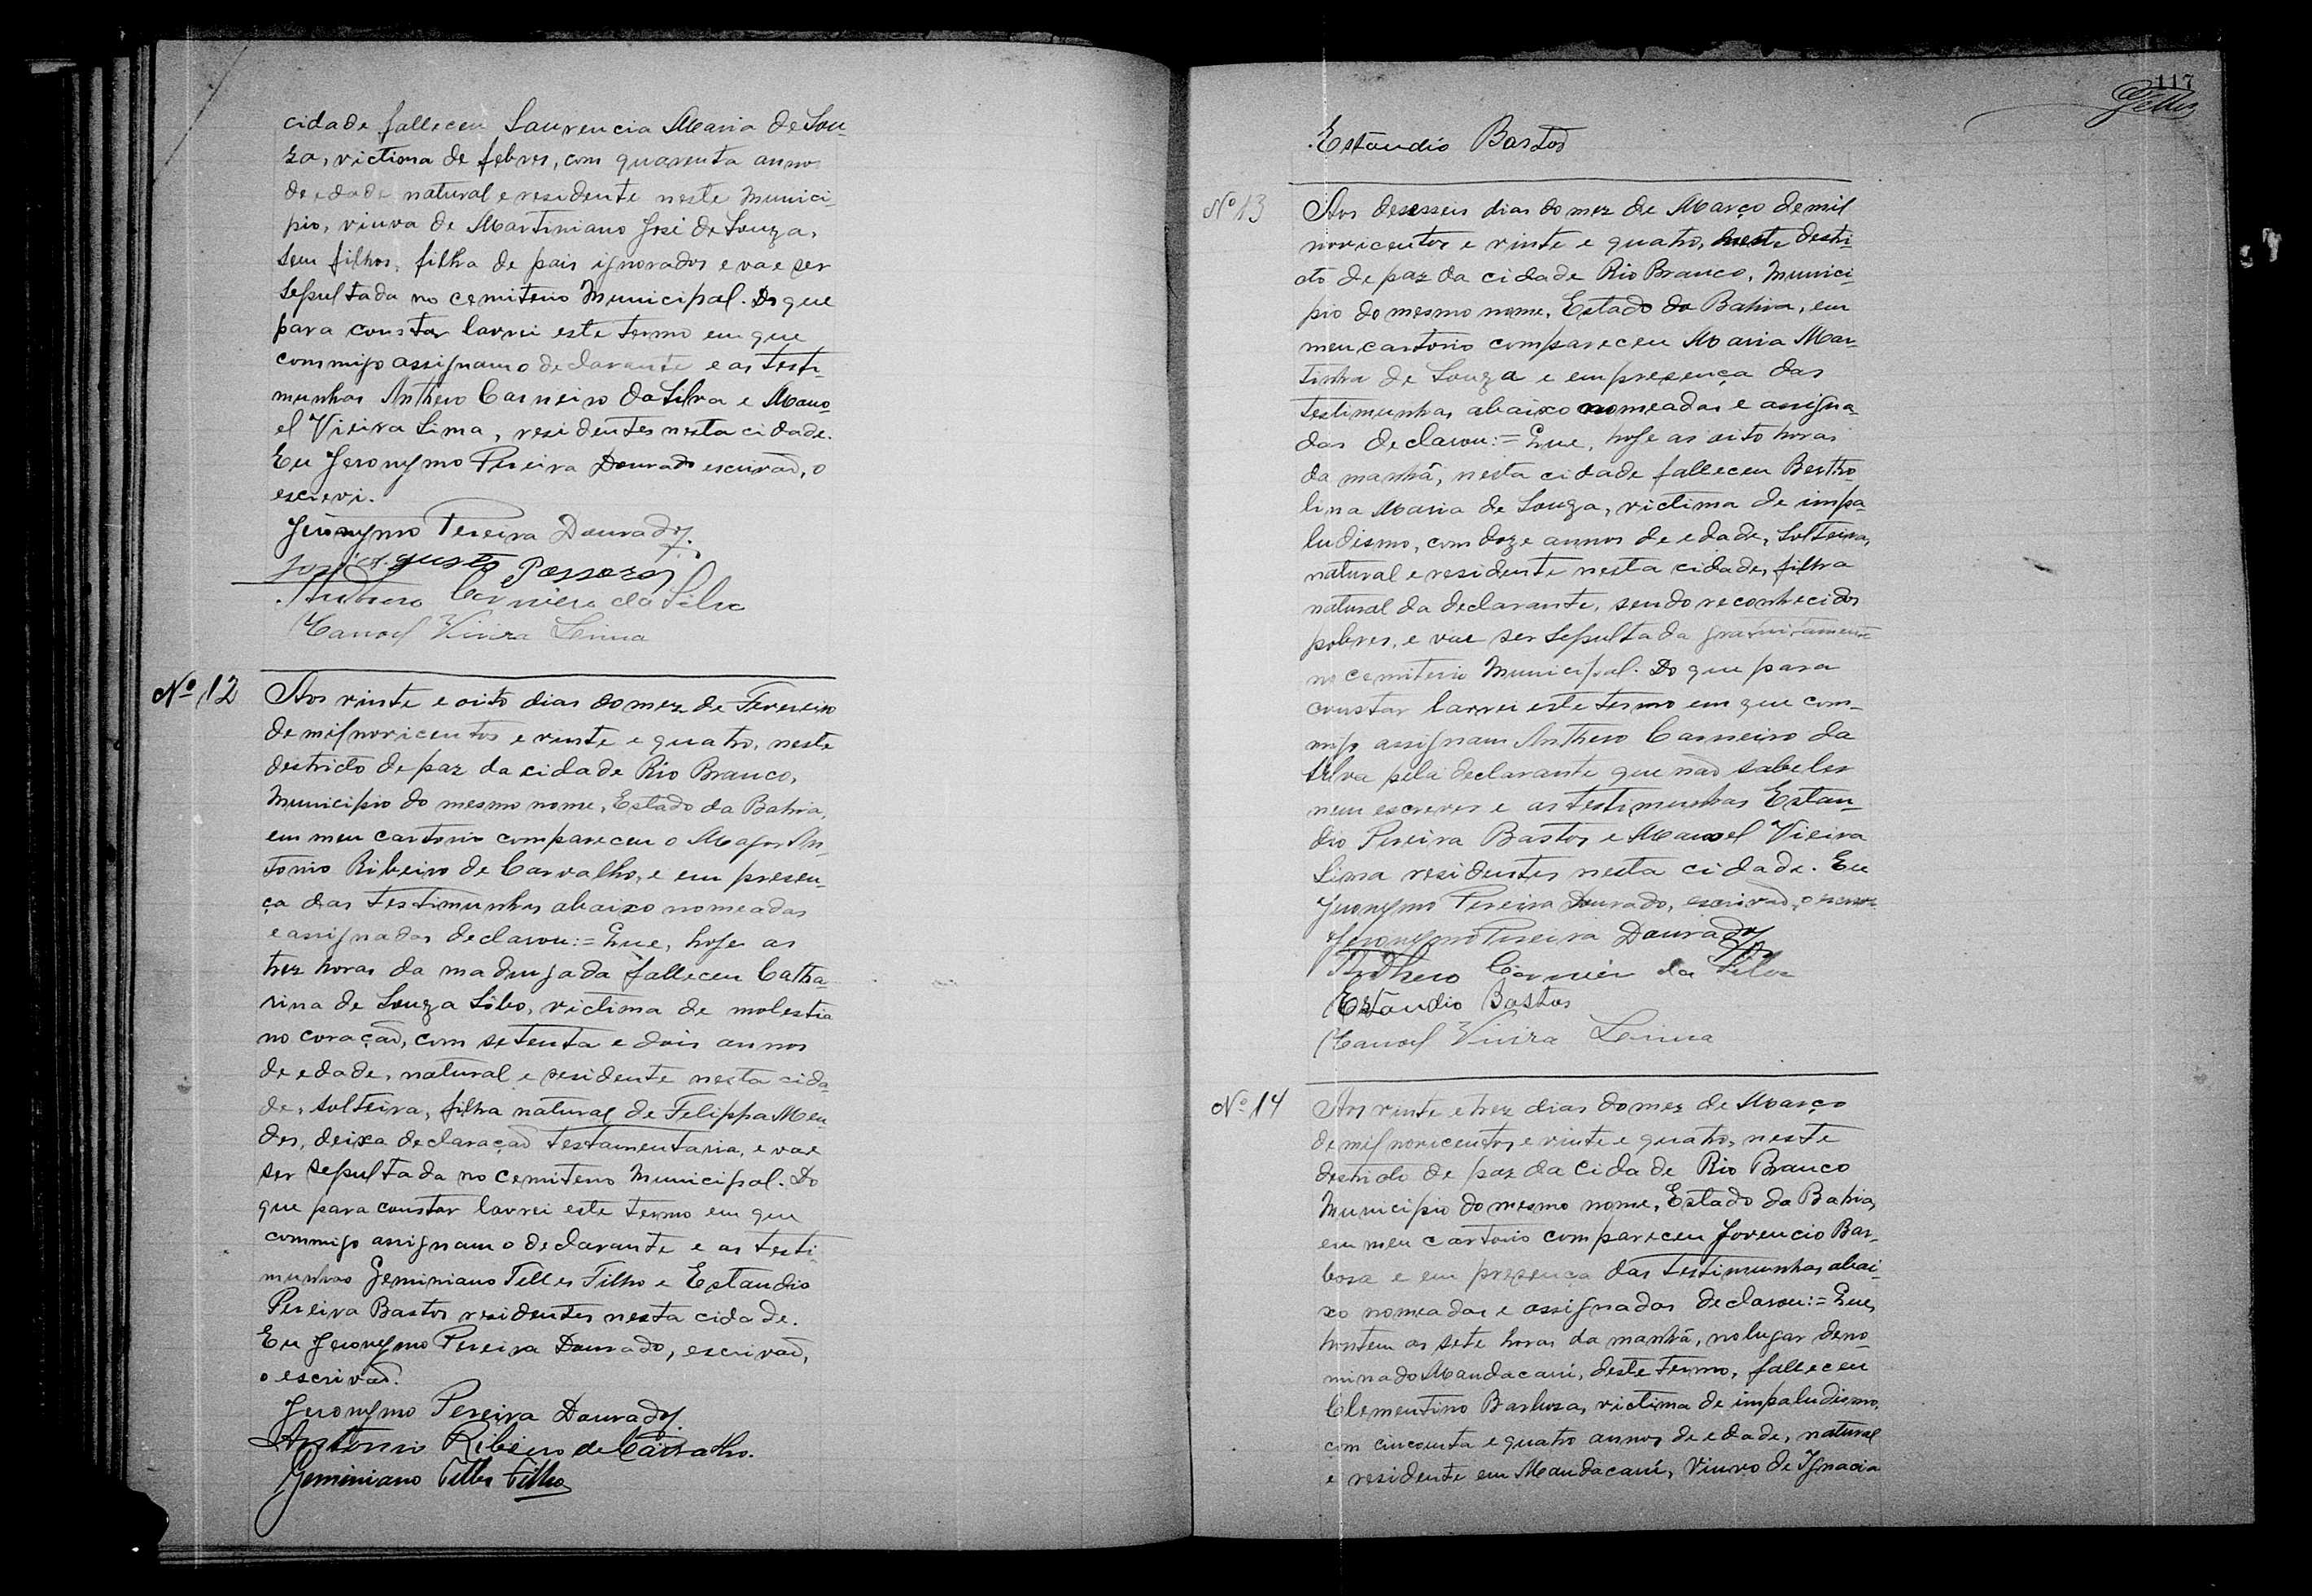 cidade falleceu Laurencia Maria de Sou-
za, victima de febres, com quarenta annos
de edade natural e residente neste Munici-
pio, viuva de Martiniano José de Souza,
sem filhos, filha de pais ignorados e vae ser
sepultada no cemiterio Municipal. Do que
para constar lavrei este termo em que
commigo assignam o declarante e as testi-
munhas Anthero Carneiro da Silva e Mano-
el Vieira Lima, residentes nesta cidade.
Eu Jeronymo Pereira Dourado escrivão, o
escrevi.
Jeronymo Pereira Dourado
José Augusto Passos
Anthero Carneiro da Silva
Manoel Vieira Lima
Nº 12
Aos vinte e oito dias do mez de Fevereiro
de mil novicentos e vinte e quatro, neste
destricto de paz da cidade Rio Branco,
Municipio do mesmo nome, Estado da Bahia,
em meu cartorio compareceu o Major An-
tonio Ribeiro de Carvalho, e em presen-
ça das testimunhas abaixo nomeadas
e assignadas declarou:= Que, hoje as
trez horas da madrugada falleceu Catha-
rina de Souza Lôbo, victima de molestia
no coração, com setenta e dois annos
de edade, natural e residente nesta cida-
de, solteira, filha natural de Felippa Men-
des, deixa declaração testamentaria, e vae
ser sepultada no cemiterio Municipal. Do
que para constar lavrei este termo em que
commigo assignam o declarante e as testi-
munhas Geminiano Telles Filho e Estaudio
Pereira Bastos residentes nesta cidade.
Eu Jeronymo Pereira Dourado, escrivão,
o escrivão.
Jeronymo Pereira Dourado
Antonio Ribeiro de Carvalho.
Geminiano Telles Filho
117
Telles
Estaudio Bastos
Nº 13
Aos desesseis dias do mez de Março de mil
novicentos e vinte e quatro, neste destri-
cto de paz da cidade Rio Branco, Munici-
pio do mesmo nome, Estado da Bahia, em
meu cartorio compareceu Maria Mar-
tinha de Souza e em presença das
testimunhas abaixo nomeadas e assigna-
das declarou:= Que, hoje as oito horas
da manhã, nesta cidade falleceu Bertho-
lina Maria de Souza, victima de impa-
ludismo, com doze annos de edade, solteira,
natural e residente nesta cidade, filha
natural da declarante, sendo reconhecidos
pobres, e vae ser sepultada gratuitamente
no cemiterio Municipal. Do que para
constar lavrei este termo em que com-
migo assignam Anthero Carneiro da
Silva pela declarante que não sabe ler
nem escrever e as testimunhas Estau-
dio Pereira Bastos e Manoel Vieira
Lima residentes nesta cidade. Eu
Jeronymo Pereira Dourado, escrivão, o escrevi
Jeronymo Pereira Dourado
Anthero Carneiro da Silva
Estaudio Bastos
Manoel Vieira Lima
Nº 14
Aos vinte e trez dias do mez de Março
de mil novicentos e vinte e quatro, neste
destricto de paz da cidade Rio Branco
Municipio do mesmo nome, Estado da Bahia,
em meu cartorio compareceu Jovencio Bar-
bosa e em presença das testimunhas abai-
xo nomeadas e assignadas declarou:= Que,
hontem as sete horas da manhã, no lugar deno-
minado Mandacarú, deste termo, falleceu
Clementino Barbosa, victima de impaludismo,
com cincoenta e quatro annos de edade, natural
e residente em Mandacarú, Viuvo de Ignacia